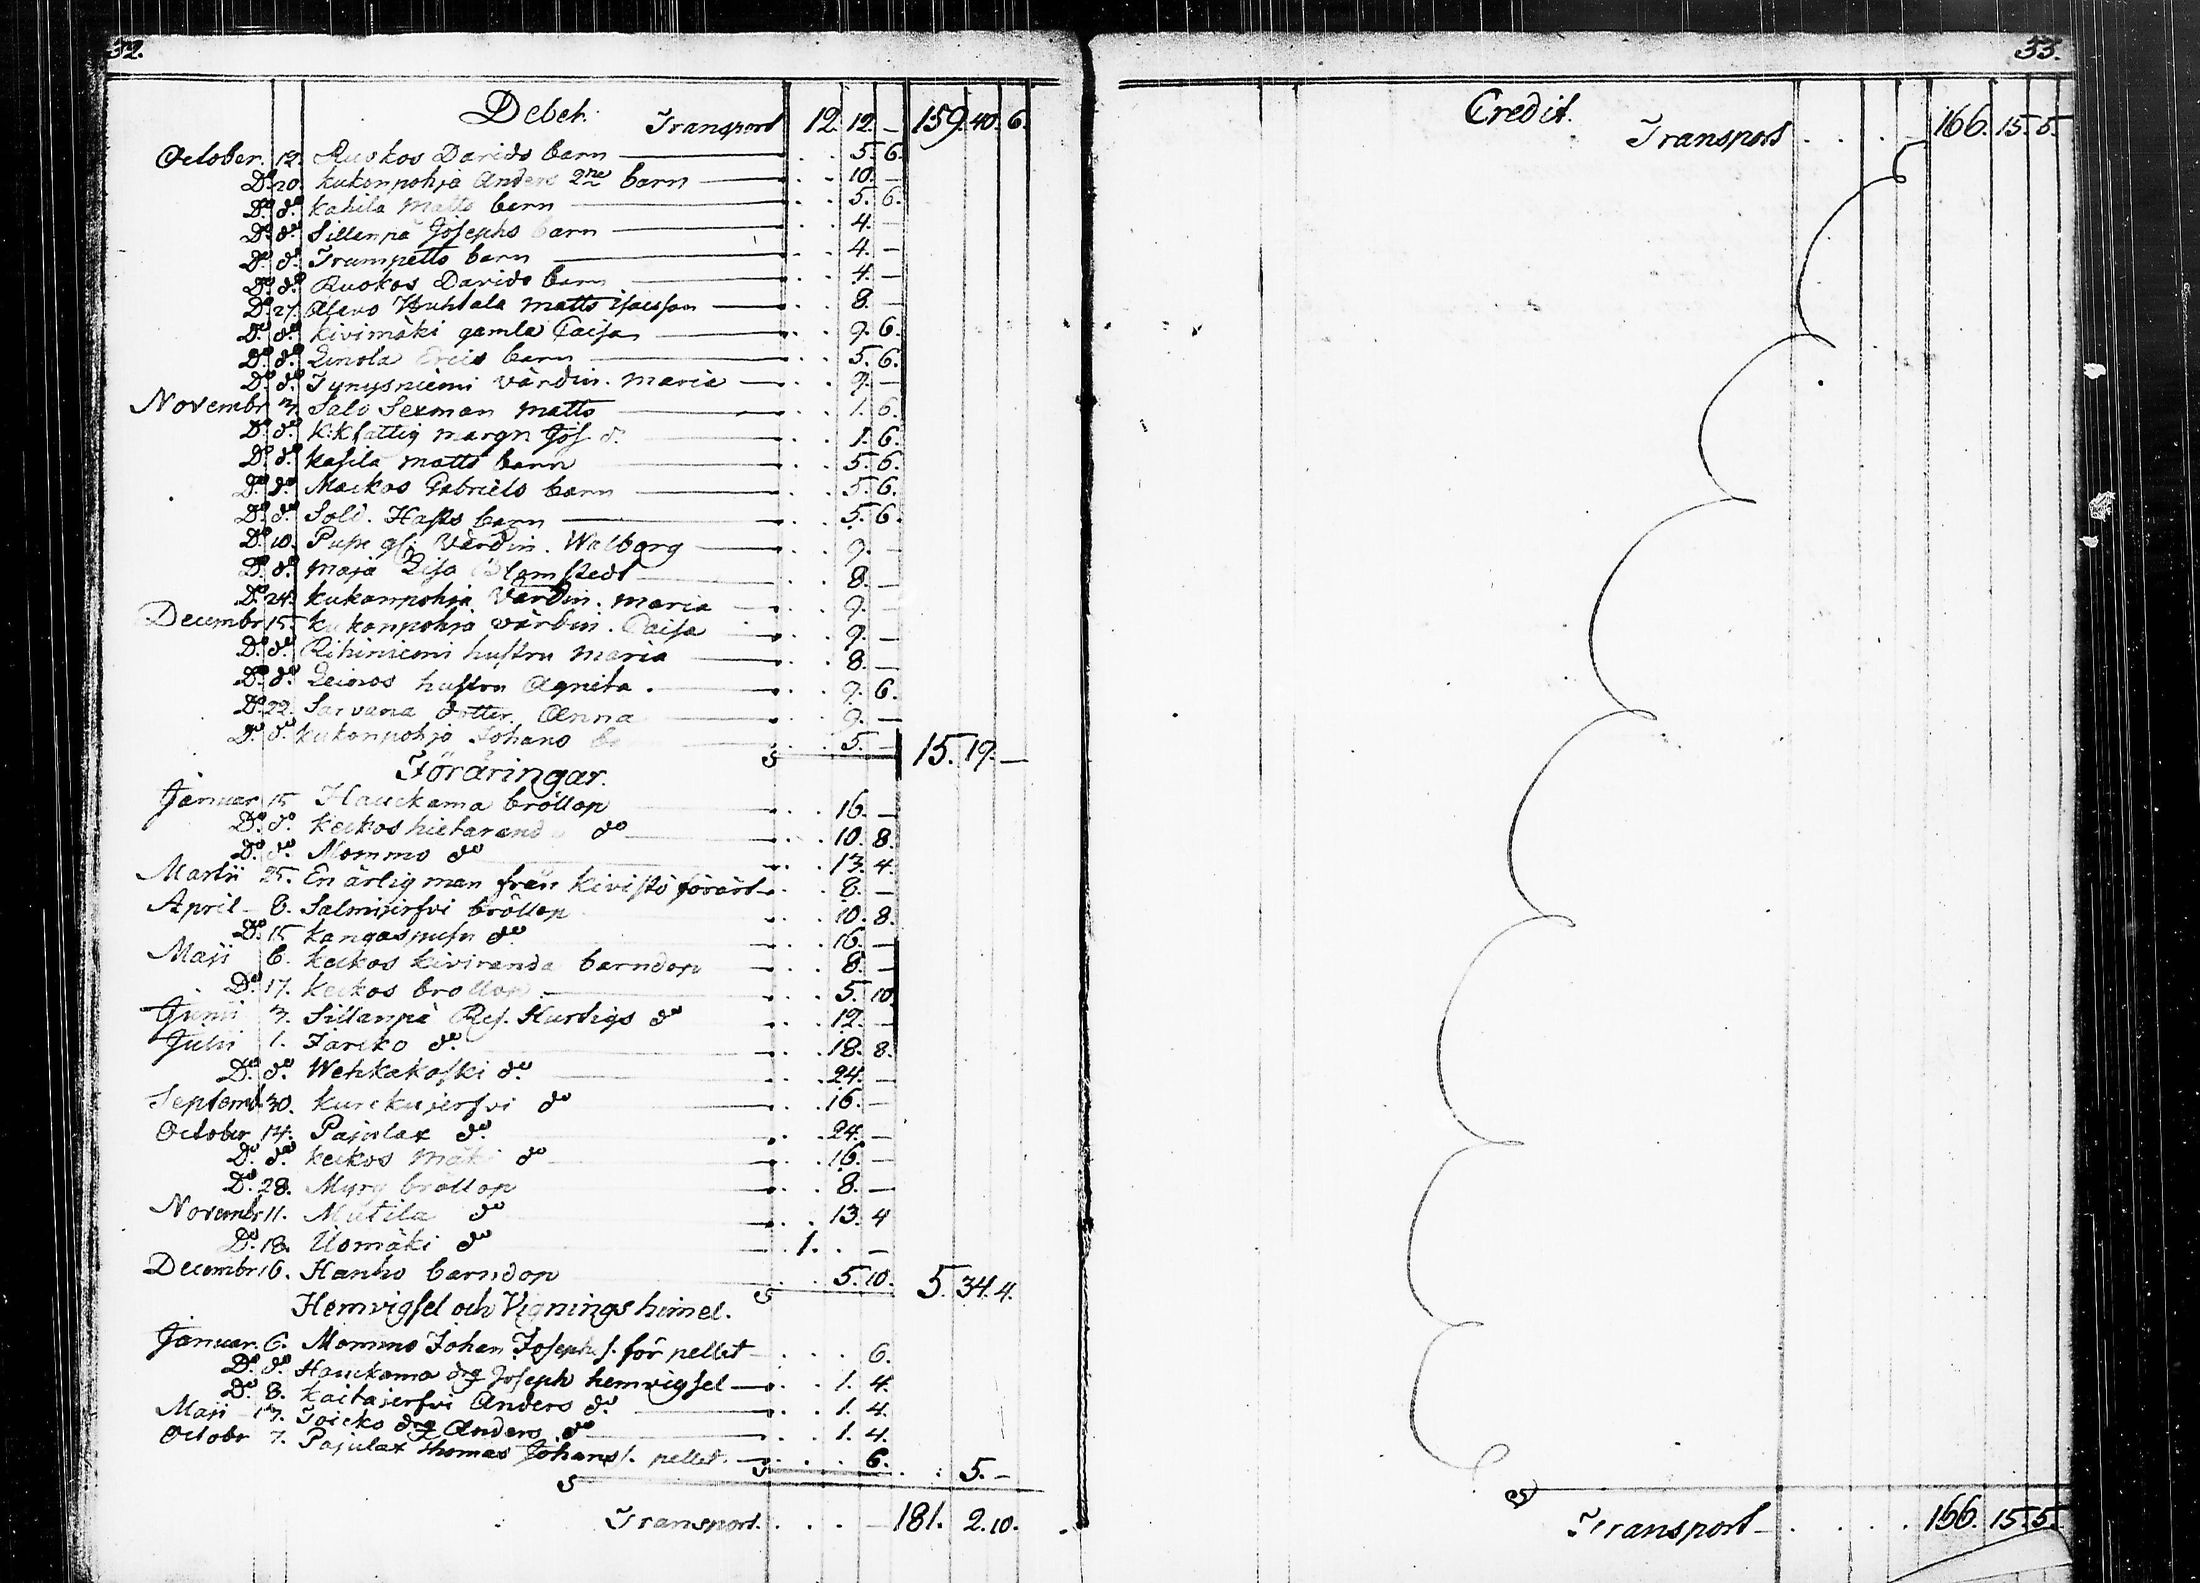 32.
Debet.
Transport 12. 12. — 159. 40. 6.
October. 12. Ruokos Davids barn — 5. 6.
Do. 20. kukonpohja Anders 2ne barn — 10. —
Do. do. kahila Matts barn — 5. 6.
Do. do. Sillanpä Josephs barn — 4. —
Do. do. Trumpetts barn — 4. —
Do. do. Ruokos Davids barn — 4. —
Do. 27. Huhtala Matts Isacsson — 8. —
Do. do. kivimäki gamla Caisa — 9. 6.
Do. do. barn — 5. 6.
Do. do. Tynysniemi värdin. Maria — 9. —
Novembr 3. Salo Sexman Matts — 1. 6.
Do. do. K:k fattig — 1. 6.
Do. do. kasila Matts barn — 5. 6.
Do. do. Gabriels barn — 5. 6.
Do. do. Sold. Hafts barn — 5. 6.
Do. 10. värdin. Walborg — 9. —
Do. do. Maja Lisa Blomstedt — 8. —
Do. 24. kukonpohja Värdin. Maria — 9. —
Decembr 15. kukonpohja värdin. Caisa — 9. —
Do. do. Rihiniemi hustru Maria — 8. —
Do. do. hustru Agneta. — 9. 6.
Do. 22. Sarvana dotter. Anna — 9. —
Do. do. kukonpohja Johans — 5. — 15. 19. —
Föräringar.
Januar. 15. Hauckama bröllop — 16. —
Do. do. keckos hietaranda do — 10. 8.
Do. do. Mommo do — 13. 4.
Martii 25. En ärlig man från kivistö förärt — 8. —
April 8. Salmijerfvi bröllop — 10. 8.
Do. 15. do — 16. —
Maji 6. keckos kiviranda barndop — 8. —
Do. 17. keckos bröllop — 5. 10.
Junii 3. Sillanpä do — 12. —
Julii 1. do — 18. 8.
Do. do. Wehkakoski do — 24. —
Septemb. 30. kureku jerfvi do — 16. —
October 14. Pajulax do — 24. —
Do. do. keckos Mäki do — 16. —
Do. 28. Myry bröllop — 8. —
Novembr 11. Mutila do — 13. 4
Do. 18. Uomäki do — 1. . —
Decembr 16. Hanho barndop — 5. 10. 5. 34. 4.
Hemvigsel och Vignings himel.
Januar. 6. Mommo Johan Josephs. för pellet — 6.
Do. do. Hauckama drg Joseph hemvigsel — 1. 4.
Do. 8. kaitajerfvi Anders do — 1. 4.
Maji 17. drg Anders do — 1. 4.
Octobr 7. Pajulax Thomas Johans. pellet. — 6. 5. —
Transport. 181. 2. 10.
33.
Credit.
Transport 166. 15. 5.
Transport 166. 15. 5.